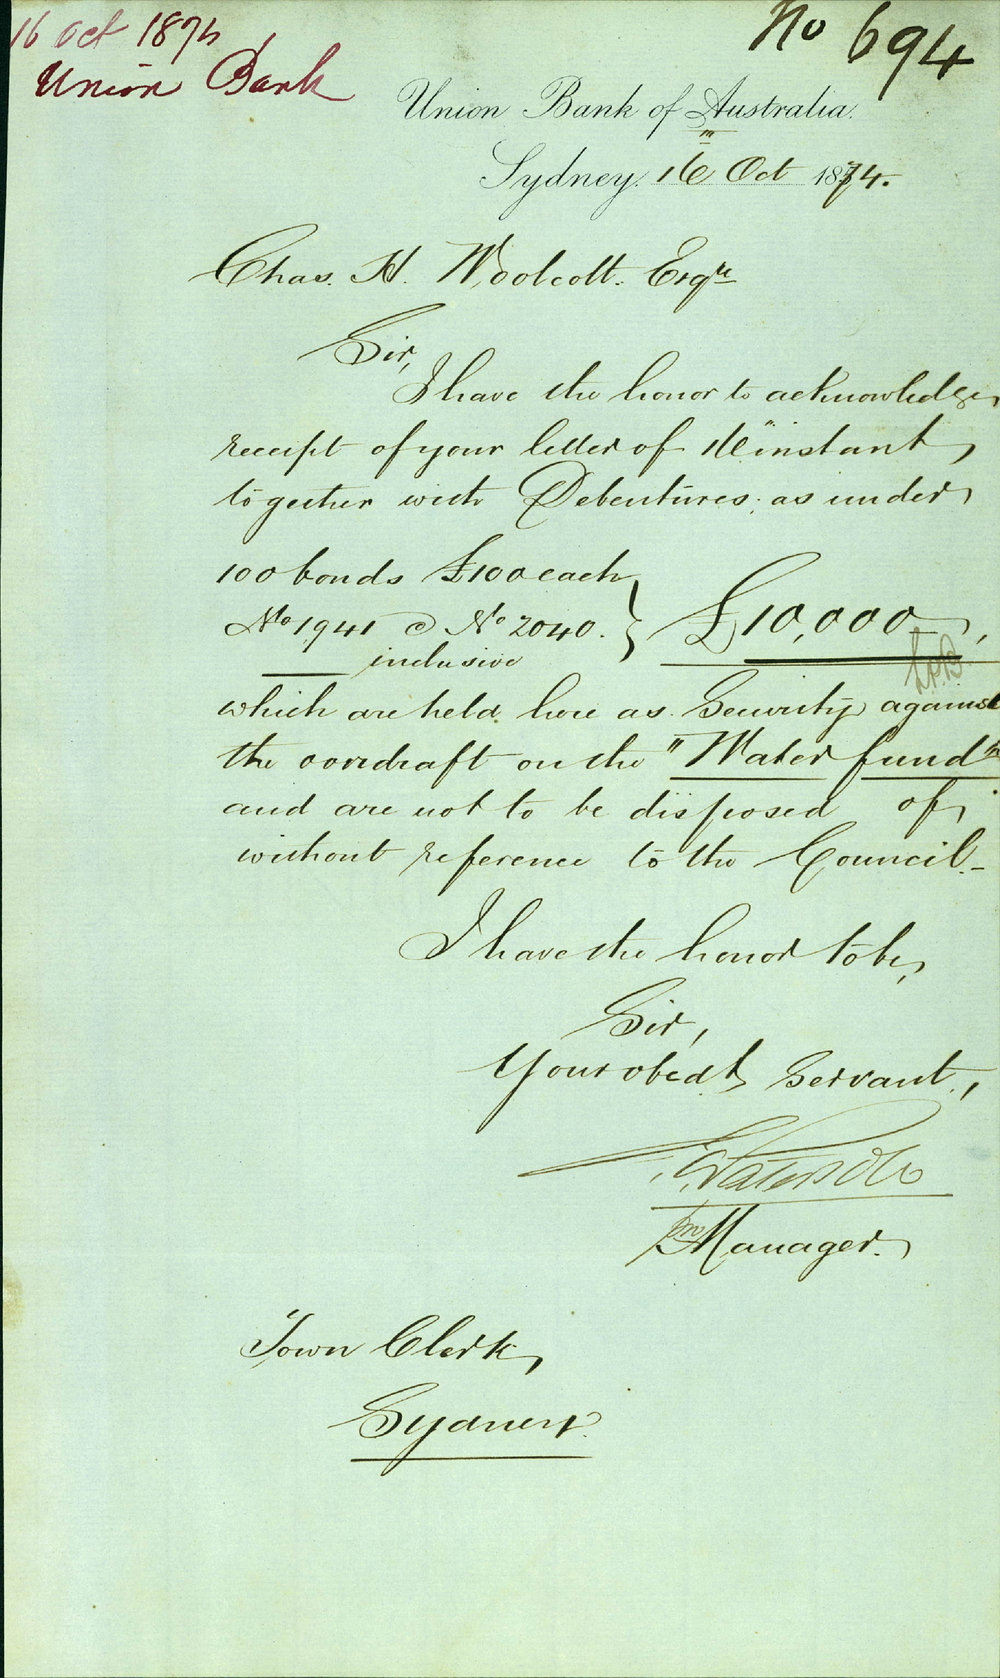 16 Oct 1874
Union Bank
No 694
Union Bank of Australia.
Sydney. 16th Oct 1874.
Chas. H. Woolcott. Esqre
Sir,
I have the honor to acknowledge
receipt of your letter of 16th instant,
together with Debentures, as under,
100 bonds £100 each
No 1941 @ No 2040.
inclusive
} £10,000,
which are held here as Security against
the overdraft on the "Water fund"
and are not to be disposed of,
without reference to the Council.
I have the honor to be,
Sir,
Your obedt Servant,
Paterson
pro Manager.
Town Clerk,
Sydney.